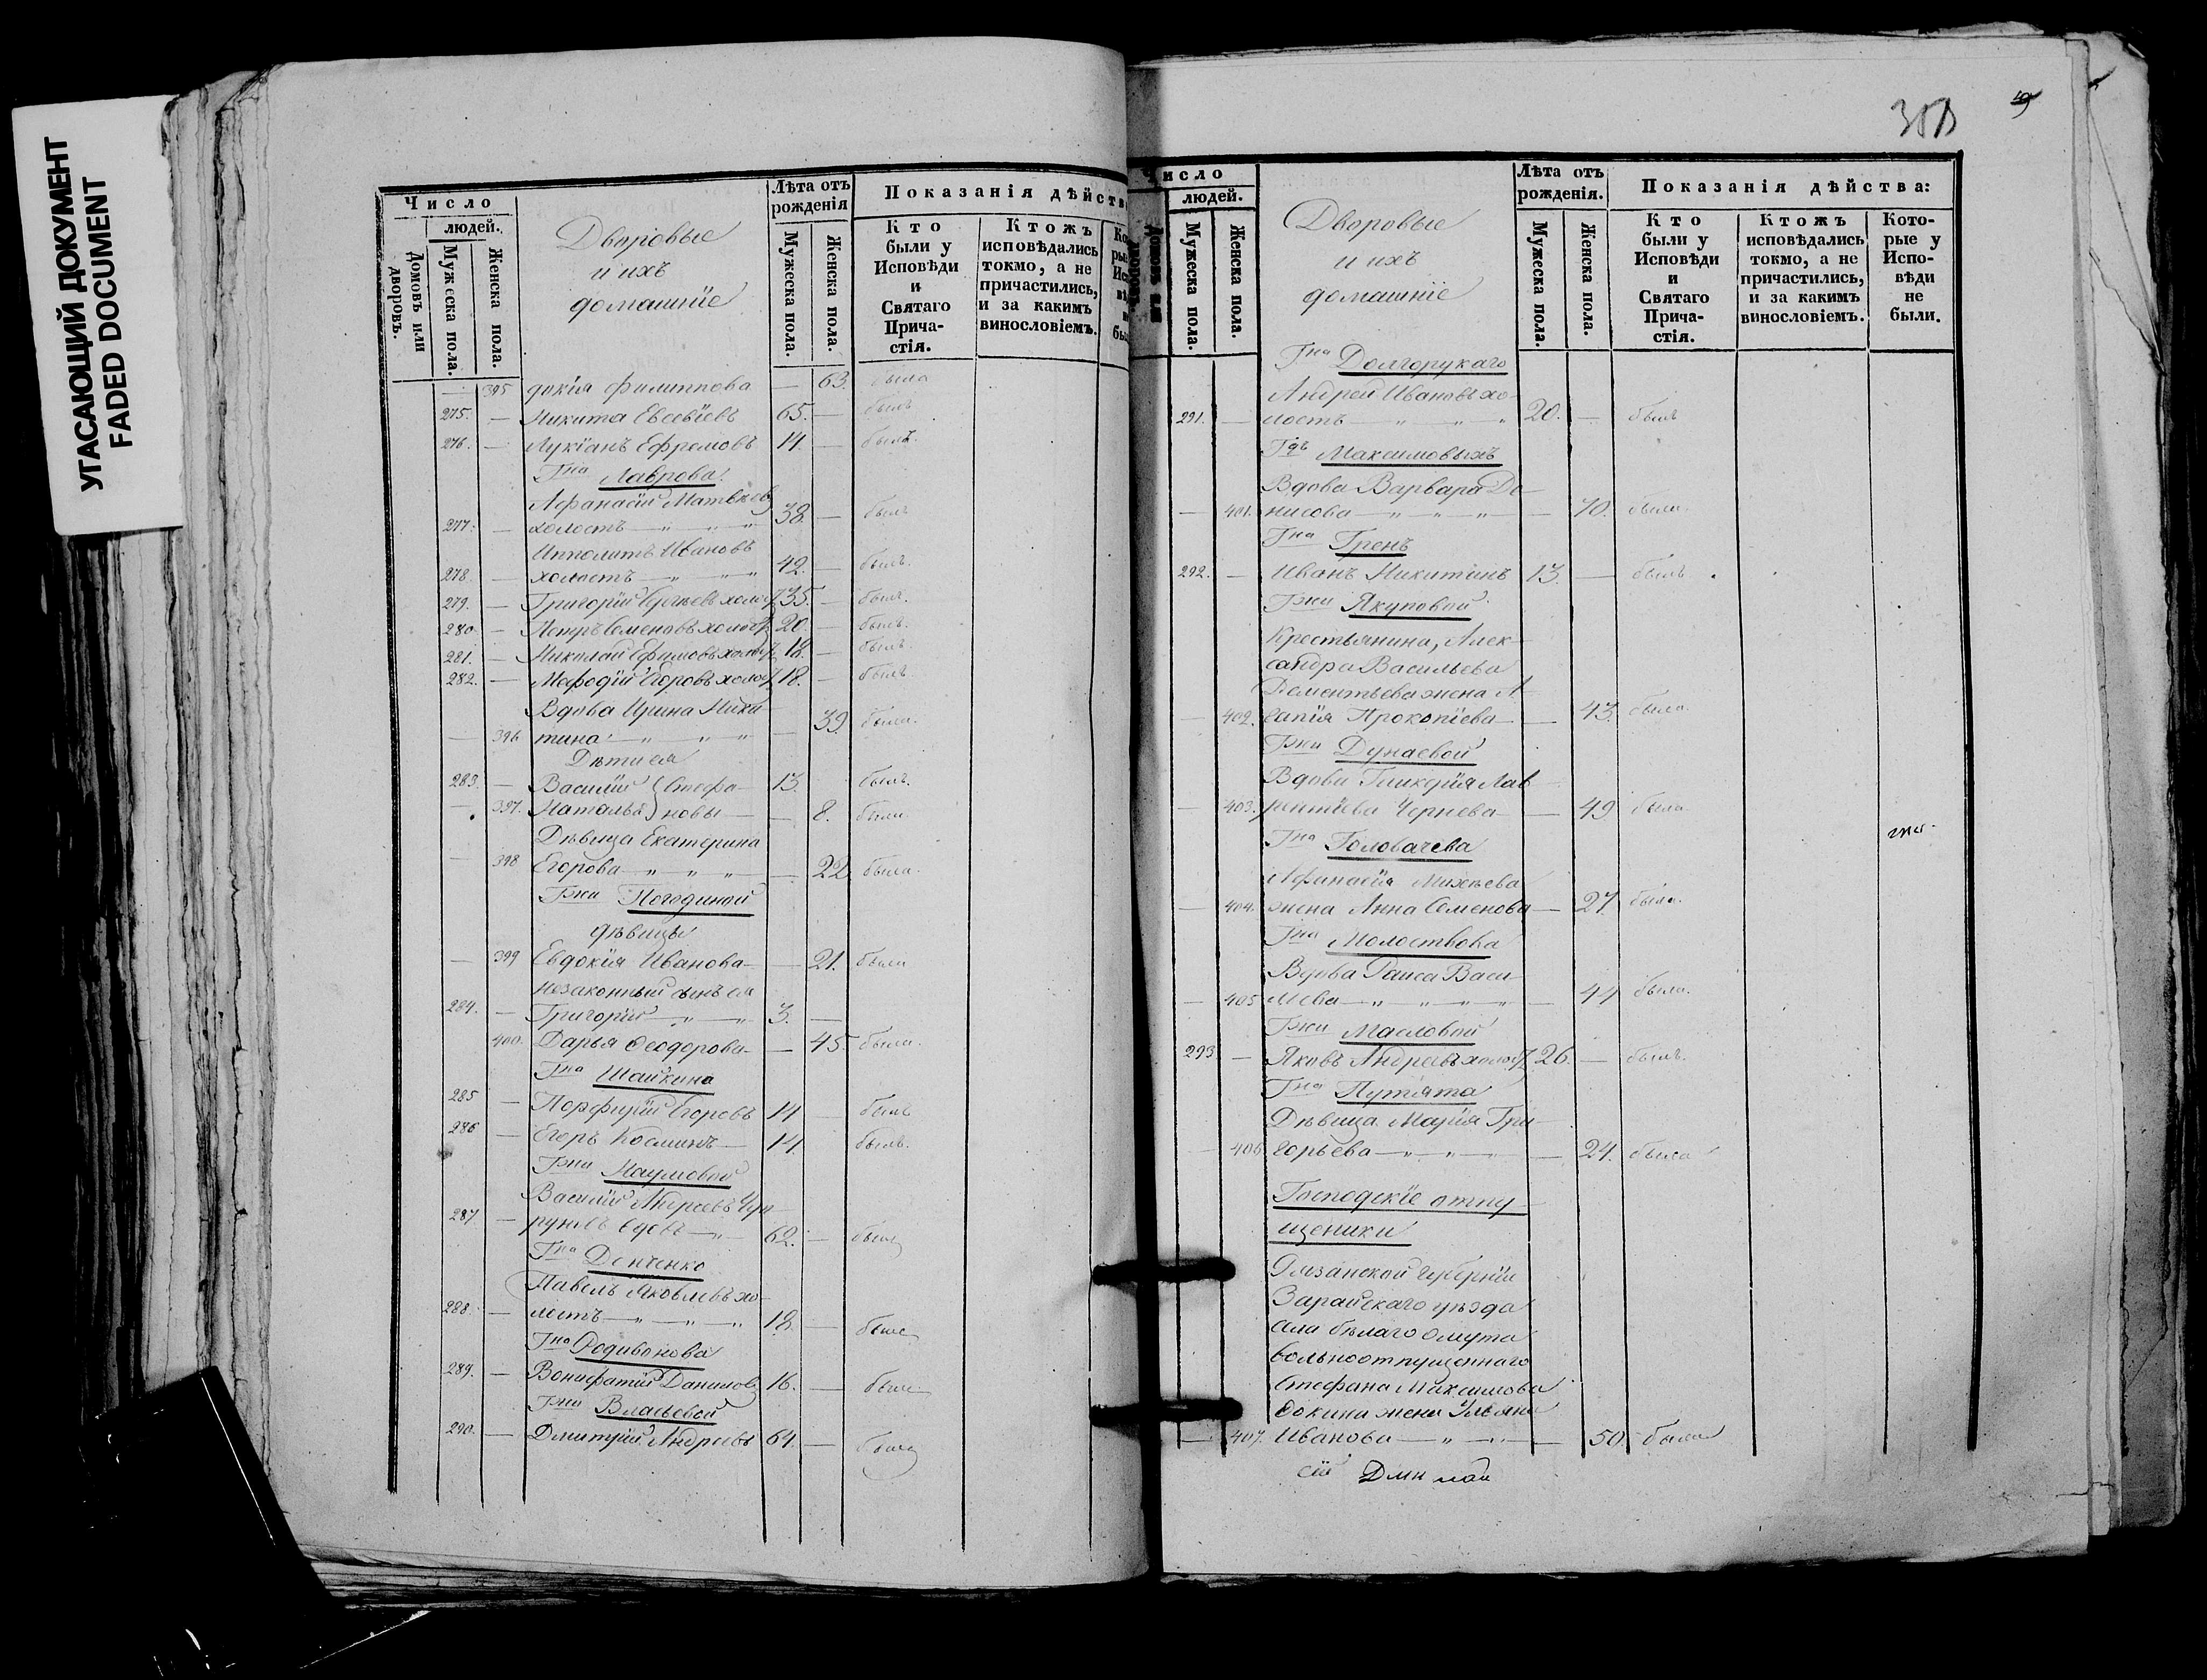 УГАСАЮЩИЙ ДОКУМЕНТ
FADED DOCUMENT
Число
людей.
Домовъ или дворовъ.
Мужеска пола.
Женска пола.
Дворовые
и ихъ
домашніе
Лѣта отъ рожденія
Мужеска пола.
Женска пола.
Показанія дѣйств
Кто были у Исповѣди и Святаго Причастія.
Ктожъ исповѣдались токмо, а не причастились, и за какимъ винословіемъ.
— 395 докія Филиппова — 63. была
275. — Никита Евсевіевъ 65. — былъ
276. — Лукіанъ Ефремовъ 14. — былъ.
Гна Лаврова.
Афанасій Матвѣевъ
277. — холостъ — " — " — " 38. — былъ
Ипполитъ Ивановъ
278. — холостъ — " — " — " 42. — былъ.
279. — Григорій Сергѣевъ холост 35. — былъ.
280. — Петръ Семеновъ холост 20. — былъ.
281. — Николай Ефимовъ холост 18. — былъ.
282. — Мефодій Егоровъ холост 18. — былъ.
Вдова Ирина Ники-
— 396 тина — " — " — " — 39. была.
Дѣти ея
283. — Василій } Стефа- 13. былъ.
— 397. Наталья } новы — — 8. была.
Дѣвица Екатерина
— 398 Егорова — " — " — " — 22. была.
Гжи Погодиной
дѣвицы
— 399 Евдокія Иванова — — 21. была
незаконный сынъ ея
284. — Григорій — " — " 3. —
400. Дарья Ѳеодорова — — 45. была.
Гна Шайкина
285 — Порфирій Егоровъ 14 — былъ
286 — Егоръ Косминъ — 14 былъ.
Гжи Наумовой
Василій Андреевъ
287 — вдовъ — " — 62. — былъ
Гна Демченко
Павелъ Яковлевъ хо-
288. — лостъ — " — " — " 18. — былъ
Гна Родивонова
289. — Вонифатій Даниловъ 16. — былъ
Гжи Власьевой
290. — Дмитрій Андреевъ 64. — былъ
Число
людей.
Мужеска пола.
Женска пола.
Дворовые
и ихъ
домашніе
Лѣта отъ рожденія.
Мужеска пола.
Женска пола.
Показанія дѣйства:
Кто были у Исповѣди и Святаго Причастія.
Ктожъ исповѣдались токмо, а не причастились, и за какимъ винословіемъ.
Которые у Исповѣди не были.
Гна Долгорукаго
Андрей Ивановъ хо-
291. — лостъ — " — " — " 20. — былъ
Гдъ Максимовыхъ
Вдова Варвара Де-
— 401. нисова — " — " — " — 70. была.
Гна Гренъ
292. — Иванъ Никитинъ 13. — былъ
Гжи Якуповой
Крестьянина, Алек-
сандра Васильева
Дементьева жена А-
— 402. гапія Прокопіева — — 43. была.
Гжи Дунаевой
Вдова Гликерія Лав-
— 403. рентіева Чернева — — 49 была
Гна Головачева
Афанасія Михѣева
— 404. жена Анна Семенова — 27. была.
Гна Молоствова
Вдова Раиса Васи-
— 405 льева — " — " — " — " — 44 была.
Гжи Масловой
293. — Яковъ Андреевъ холост 26. — былъ.
Гна Путята
Дѣвица Марія Гри-
— 406 горьева — " — " — — 24. была
Господскіе отпу-
щеники
Рязанской губерніи
Зарайскаго уѣзда
села бѣлаго омута
вольноотпущеннаго
Стефана Максимова
жена Ульяна
— 407. Иванова — " — " — — 50. была